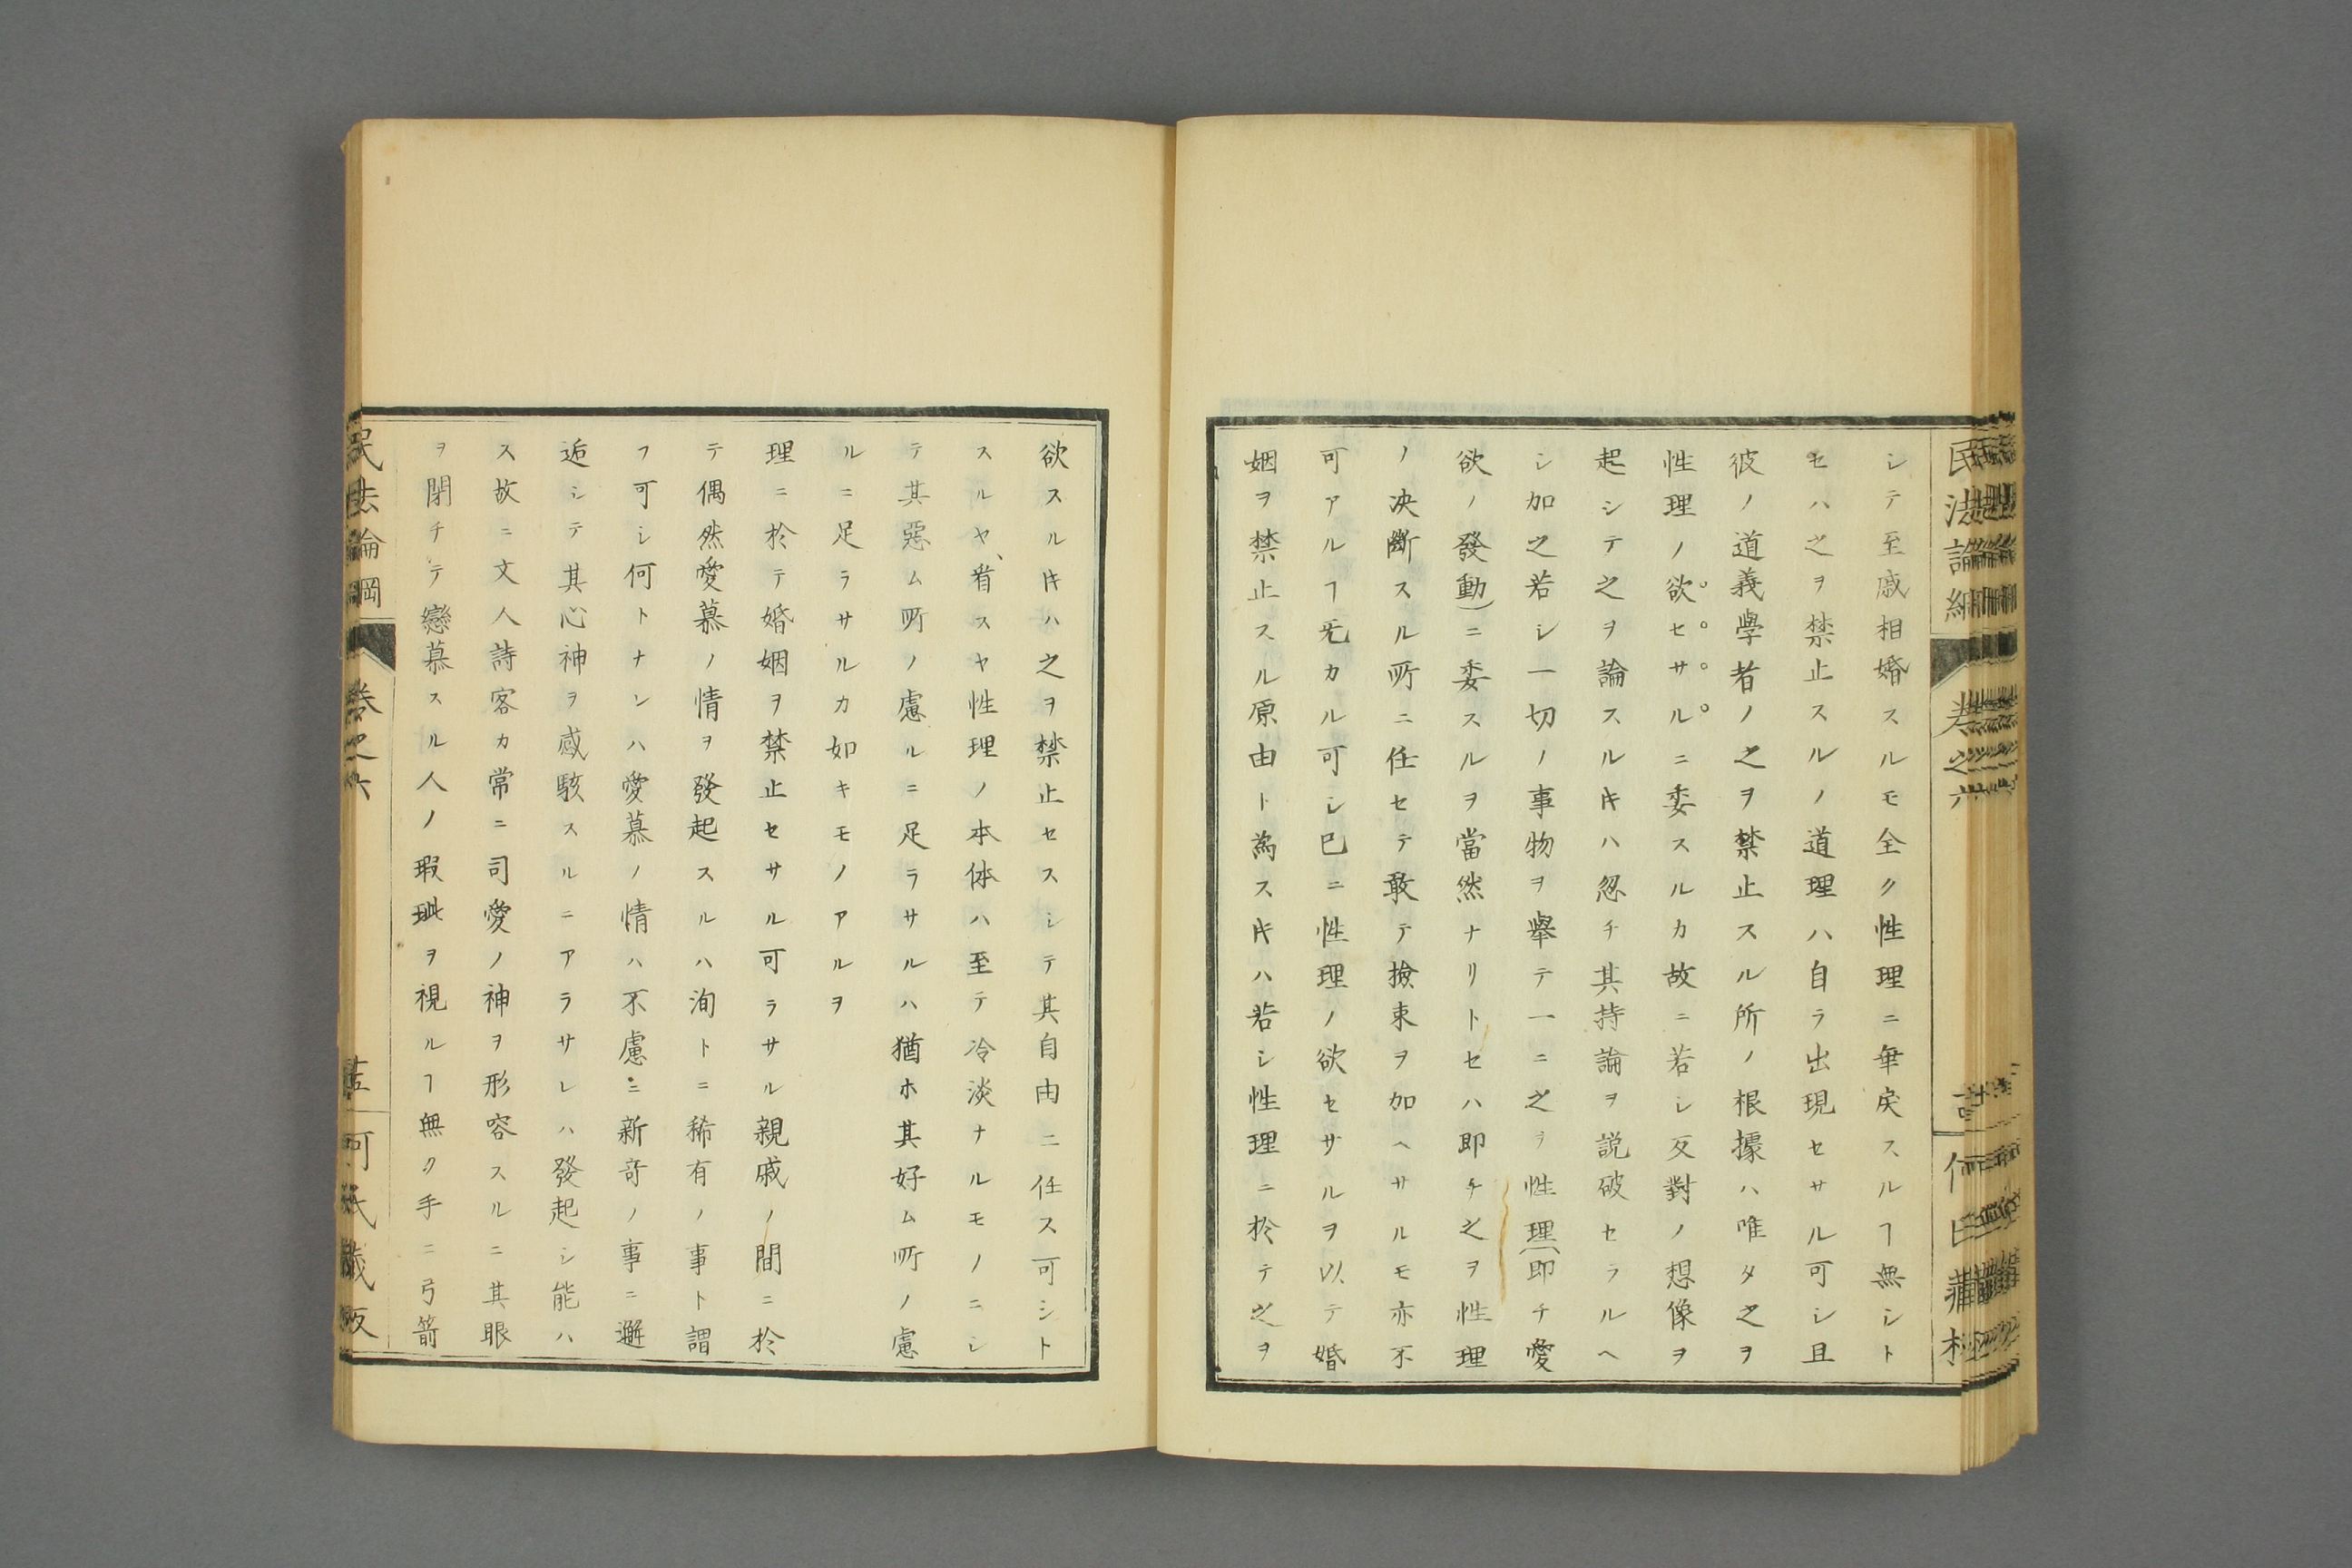 シテ至戚相婚スルモ全ク性理ニ乖戾スルヿ無シト
セハ之ヲ禁止スルノ道理ハ自ラ出現セサル可シ且
彼ノ道義學者ノ之ヲ禁止スル所ノ根據ハ唯タ之ヲ
性理ノ欲セサルニ委スルカ故ニ若シ反對ノ想像ヲ
起シテ之ヲ論スル𪜈ハ忽チ其持論ヲ説破セラルヘ
シ加之若シ一切ノ事物ヲ舉テ一ニ之ヲ性理(即チ愛
欲ノ發動)ニ委スルヲ當然ナリトセハ即チ之ヲ性理
ノ决斷スル所ニ任セテ敢テ撿束ヲ加ヘサルモ亦不
可アルヿ旡カル可シ已ニ性理ノ欲セサルヲ以テ婚
姻ヲ禁止スル原由ト為スキハ若シ性理ニ於テ之ヲ
欲スルキハ之ヲ禁止セスシテ其自由ニ任ス可シト
スルヤ、看スヤ性理ノ本体ハ至テ冷淡ナルモノニシ
テ其惡ム所ノ慮ルニ足ラサルハ猶ホ其好ム所ノ慮
ルニ足ラサルカ如キモノアルヲ
理ニ於テ婚姻ヲ禁止セサル可ラサル親戚ノ間ニ於
テ偶然愛慕ノ情ヲ發起スルハ洵トニ稀有ノ事ト謂
フ可シ何トナンハ愛慕ノ情ハ不慮ニ新竒ノ事ニ邂
逅シテ其心神ヲ感駭スルニアラサレハ發起シ能ハ
ス故ニ文人詩客カ常ニ司愛ノ神ヲ形容スルニ其眼
ヲ閉チテ戀慕スル人ノ瑕玼ヲ視ルヿ無ク手ニ弓箭
民法論綱 卷之六
何氏藏版